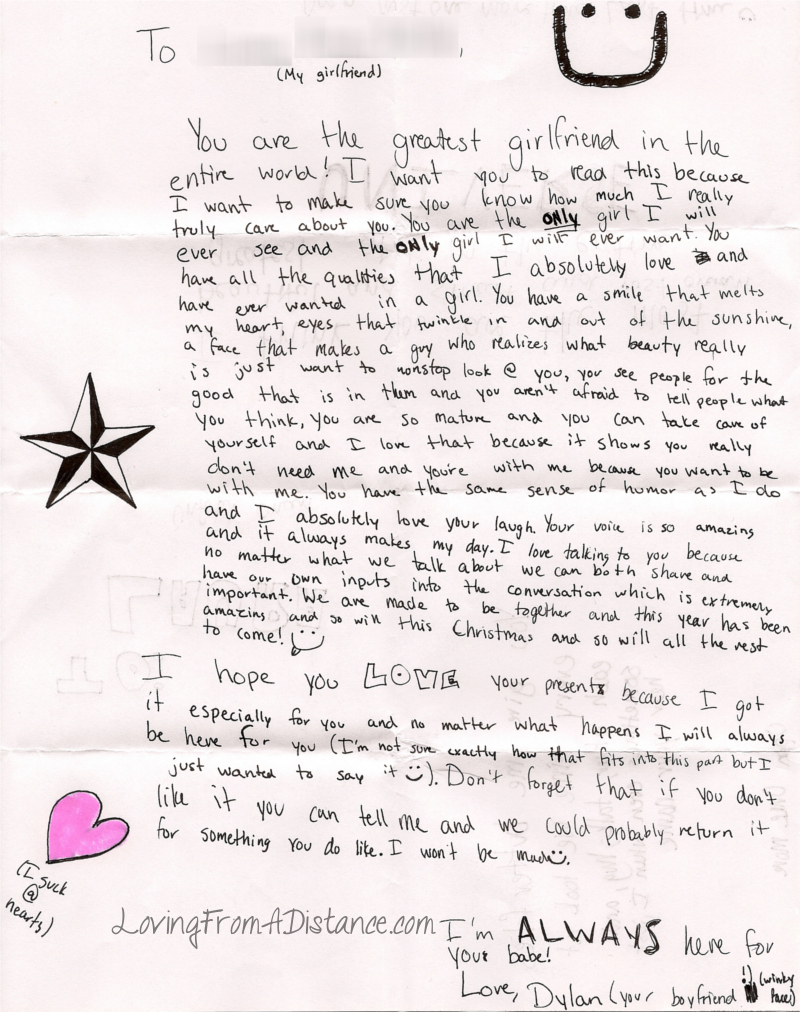 To
(My girlfriend)
You are the greatest girlfriend in the
entire world! I want you to read this because
I want to make sure you know how much I really
truly care about you. You are the ONLY girl I will
ever see and the ONLY girl I will ever want. You
have all the qualities that I absolutely love and
have ever wanted in a girl. You have a smile that melts
my heart, eyes that twinkle in and out of the sunshine,
a face that makes a guy who realizes what beauty really
is just want to nonstop look @ you, you see people for the
good that is in them and you aren't afraid to tell people what
you think, you are so mature and you can take care of
yourself and I love that because it shows you really
don't need me and you're with me because you want to be
with me. You have the same sense of humor as I do
and I absolutely love your laugh. Your voice is so amazing
and it always makes my day. I love talking to you because
no matter what we talk about we can both share and
have our own inputs into the conversation which is extremely
important. We are made to be together and this year has been
amazing and so will this Christmas and so will all the rest
to come!
I hope you LOVE your present because I got
it especially for you and no matter what happens I will always
be here for you (I'm not sure exactly how that fits into this part but I
just wanted to say it :)). Don't forget that if you don't
like it you can tell me and we could probably return it
for something you do like. I won't be mad :).
(I suck
@
hearts)
LovingFromADistance.com
I'm ALWAYS here for
you babe!
Love, Dylan (your boyfriend ;) (winky
face)